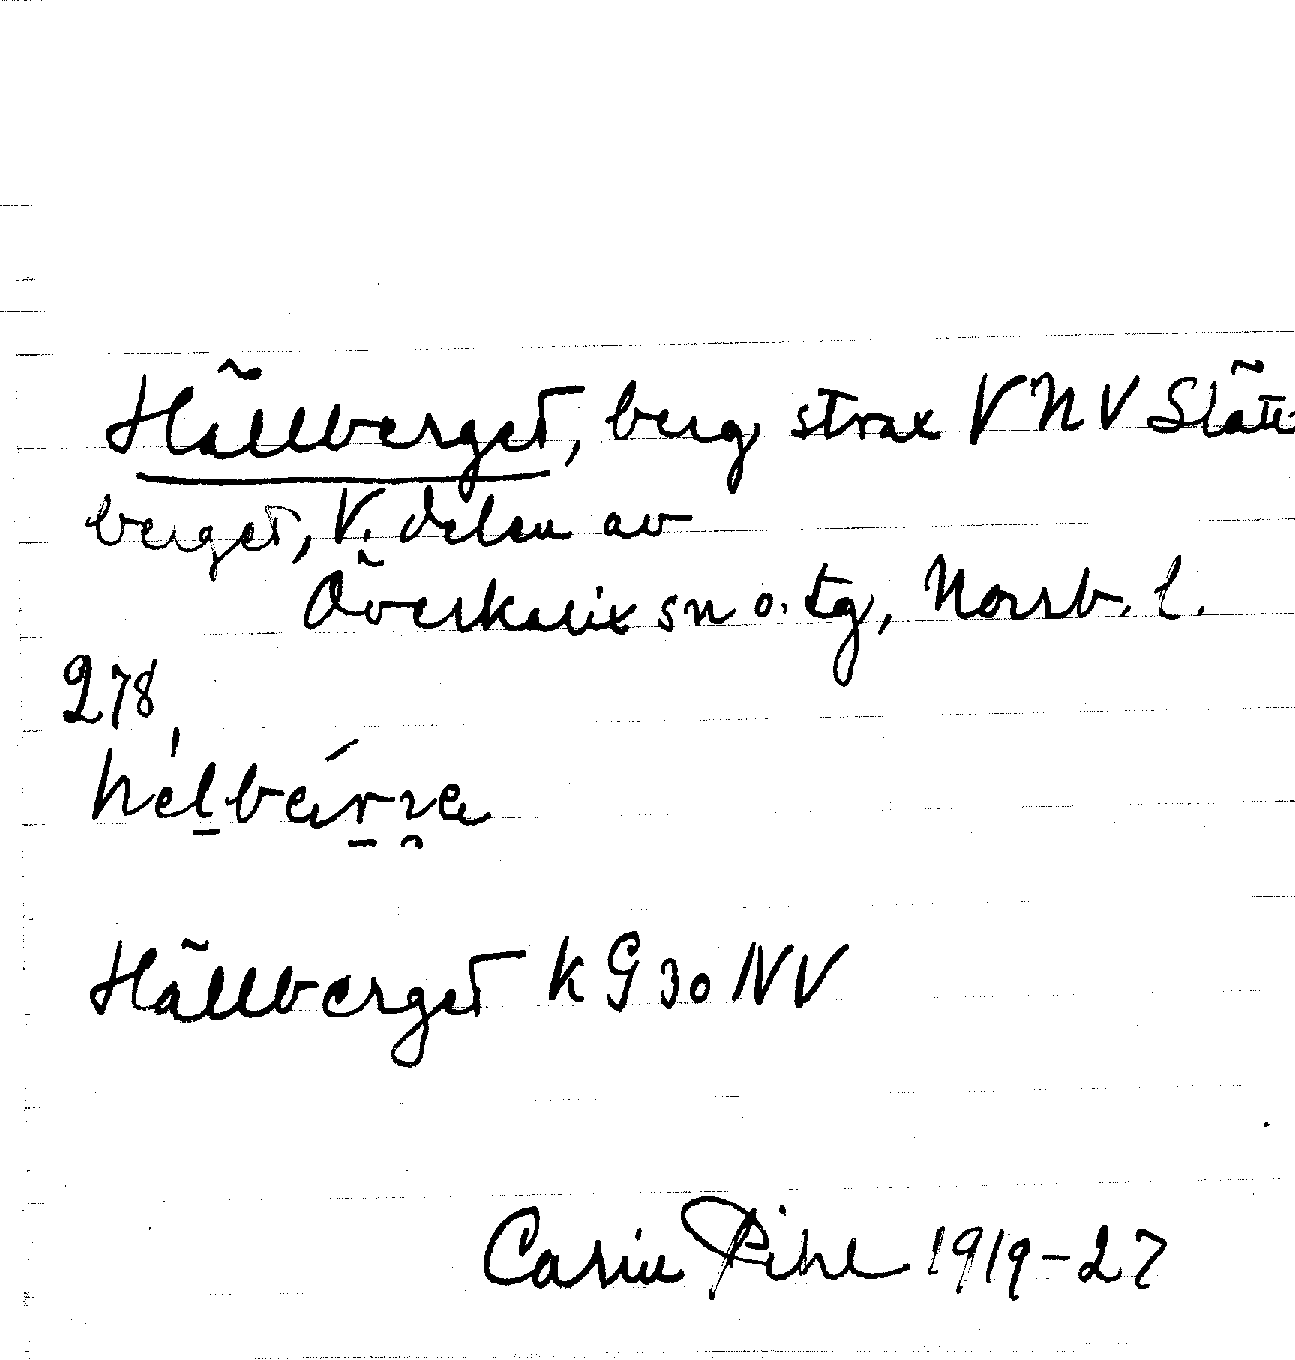 Hällberget, berg strax VNV Slätt-
berget, V. delen av
Överkalix sn o. tg, Norrb. l.
278
Hällberget KG 30 NV
Carin Pihl 1919-27